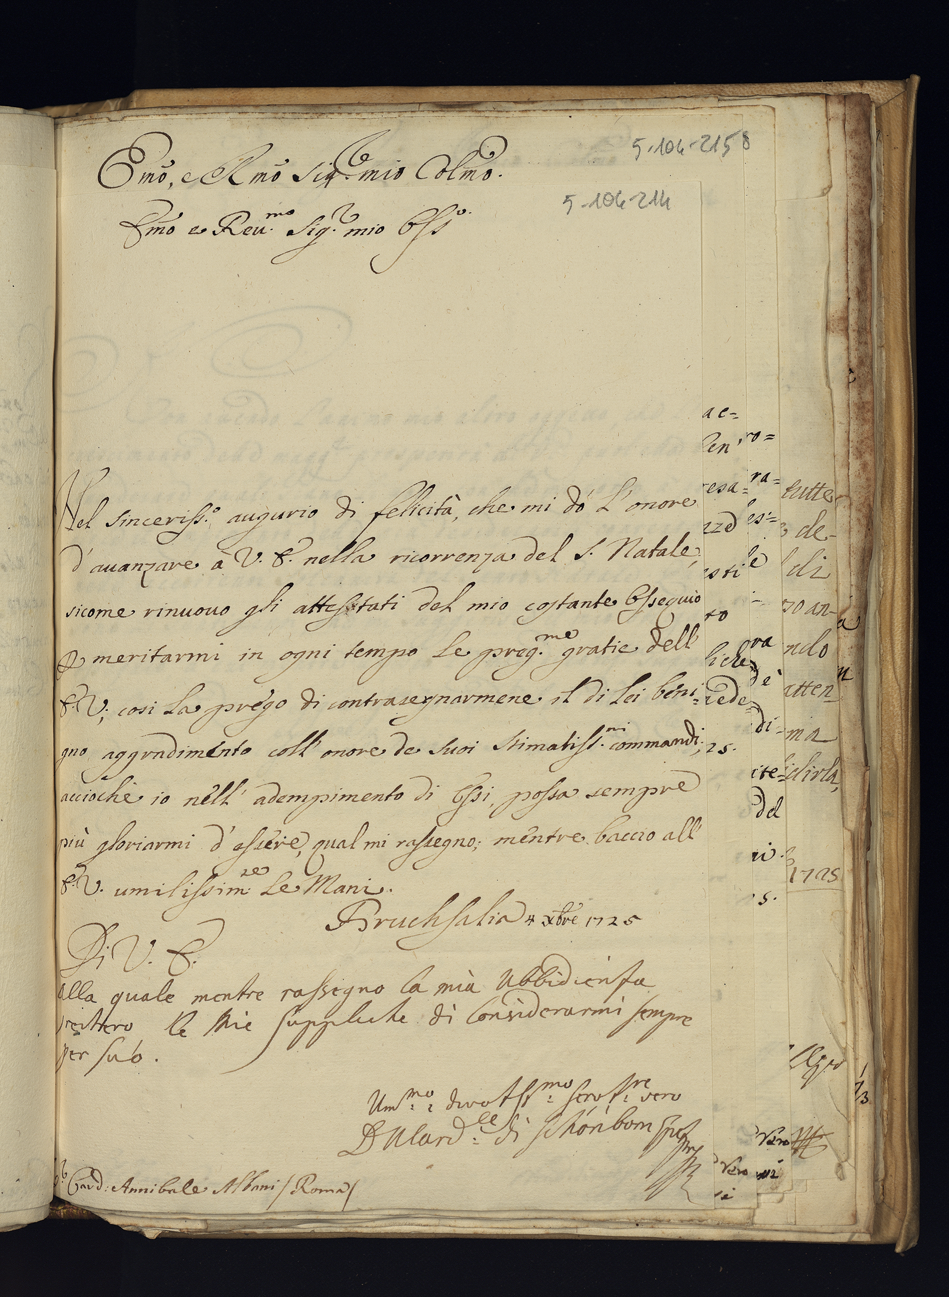 5-104-2158
Emo, e Rmo Sig.r mio Colmo.
5-104-214
Emo e Reu.mo Sig.r mio Oss.o
Nel sinceriss.o augurio di felicità, che mi dò l'onore
d'auanzare à V. E. nella ricorrenza del S. Natale,
sicome rinuouo gli attestati del mio costante Ossequio
meritarmi in ogni tempo le preg.me gratie dell'
E. V; cosi la prego di contrasegnarmene il di Lei beni-
gno aggradimento coll'onore de suoi stimatiss.mi commandi,
acciochè io nell'adempimento di Essi, possa sempre
più gloriarmi d'essere, qual mi rassegno; mentre baccio all'
E. V. umilissim.te le Mani.
Bruchsalia 4 Xbre 1725
Di V. E.
alla quale mentre rassegno la mia Ubbidienza
reittero le Mie suppliche di Considerarmi sempre
per suo.
Um.mo diuotiss.mo seruit.re vero
D A Card.le di Schönborn
Card: Annibale Albani /Roma/
ae-
ro-
resa-
ra-
tutte
de-
di
ndo
atten-
ma
25.
ite-
del
1725
5.
Vero
Vero